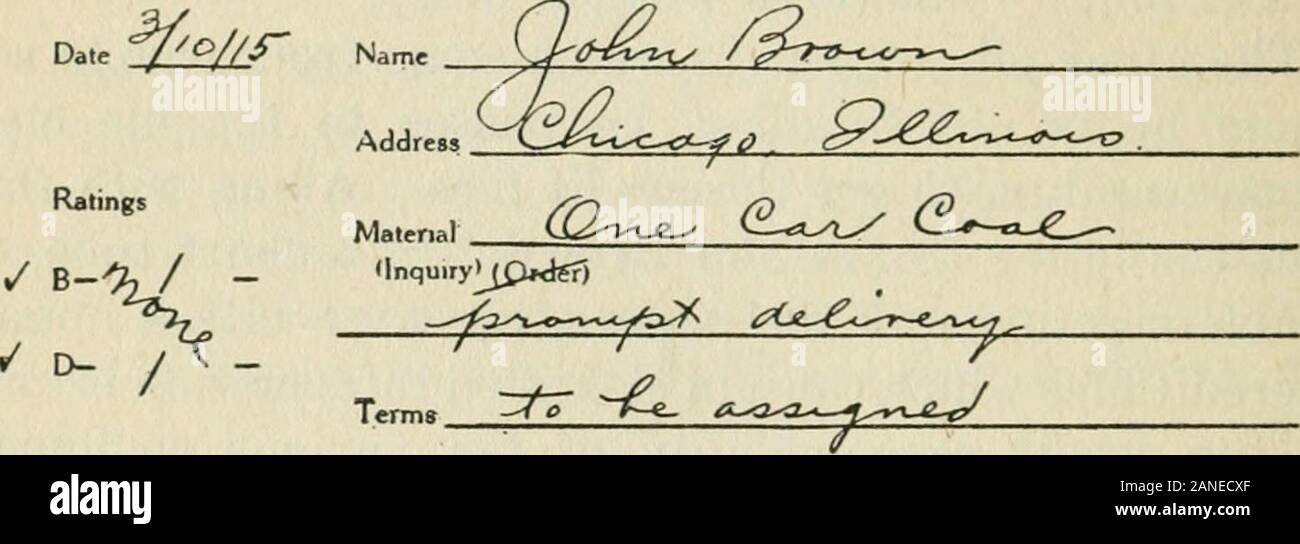 Date 3/10/15 Name John Brown
Address Chicago, Illinois.
Ratings
Material One Car Coal
(Inquiry) (Order)
✓ B- None / -
prompt delivery
✓ D- / -
Terms to be assigned
alamy
Image ID: 2ANECXF
www.alamy.com